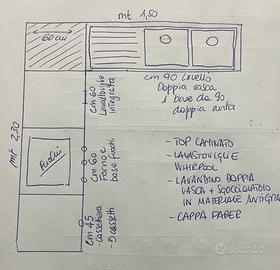 mt 1,50
60 cm
cm 90 Lavello
Doppia vasca
1 base da 90
doppia anta
cm 60
Lavastoviglie
integrata
mt 2,30
Fuochi
cm 60
Forno e
base fuochi
cm 45
- Cassettiera
- 3 cassetti
- TOP LAMINATO
- LAVASTOVIGLIE
WHIRPOOL
- LAVANDINO DOPPIA
VASCA + SGOCCIOLATOIO
IN MATERIALE
- CAPPA FABER
Subito